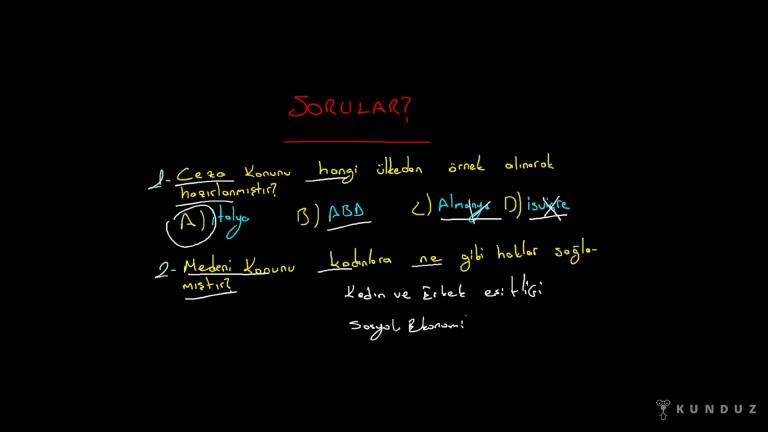 SORULAR?
1- Ceza Kanunu hangi ülkeden örnek alınarak
hazırlanmıştır?
A) İtalya B) ABD C) Almanya D) İsviçre
2- Medeni Kanunu kadınlara ne gibi haklar sağla-
mıştır?
Kadın ve Erkek eşitliği
Sosyal Ekonomi
KUNDUZ